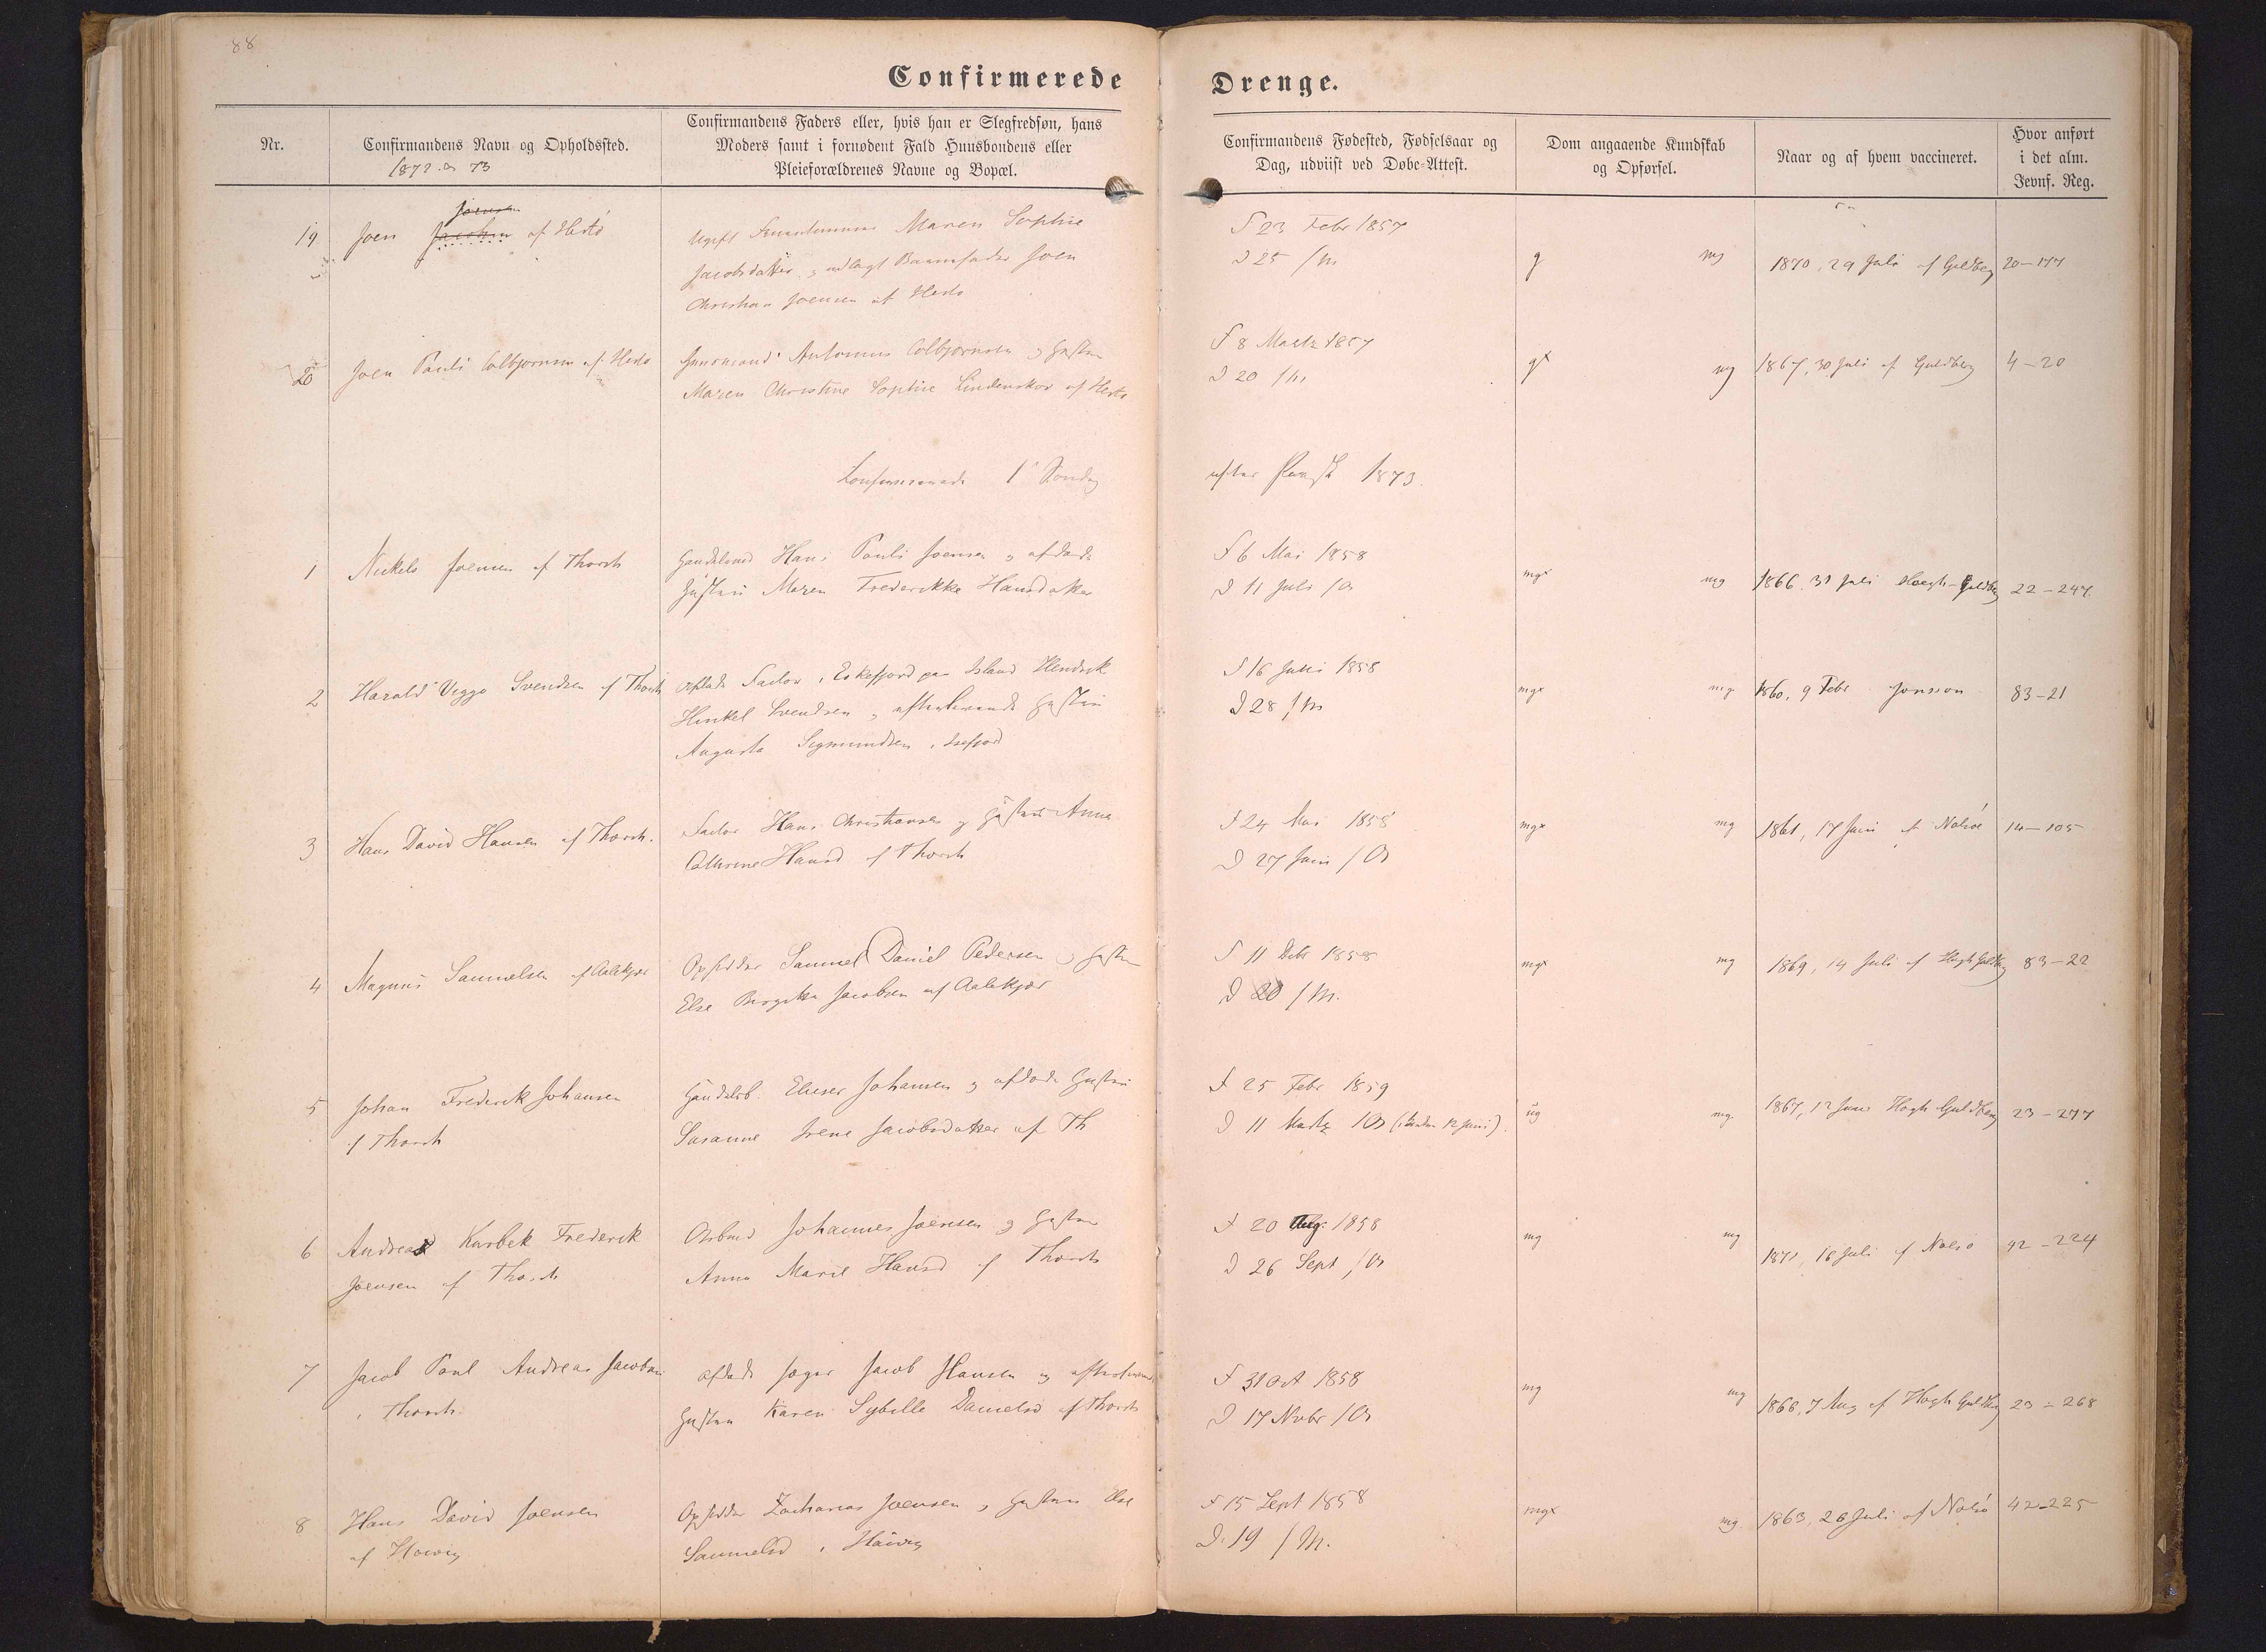 88
Confirmerede Drenge.
Nr.
Confirmandens Navn og Opholdssted.
1872 & 73
Confirmandens Faders eller, hvis han er Slegfredsøn, hans
Moders samt i fornødent Fald Huusbondens eller
Pleieforældrenes Navne og Bopæl.
Confirmandens Fødested, Fødselsaar og
Dag, udviist ved Døbe-Attest.
Dom angaaende Kundskab
og Opførsel.
Naar og af hvem vaccineret.
Hvor anført
i det alm.
Jevnf. Reg.
19
Joensen
Joen Jacobsen af Hestø
ugift Fruentimmer Maren Sophie
Jacobsdatter, udlagt Barnefader Joen
Christian Joensen af Hestø
F 23 Febr 1857
D 25 / m
g
mg
1870, 29 Juli af Guldberg
20-177
20
Joen Pauli Colbjørnsen af Hestø
Antonius Colbjørnsen og Hustru
Maren Christine Sophie Lindenskov af Hestø
F 8 Martz 1857
D 20 / m
gx
mg
1867, 30 Juli af Guldberg
4-20
Confirmerede 1ste Søndag
efter Paaske 1873.
1
Nickels Joensen af Thorsh
Hans Pauli Joensen og afdøde
Hustru Maren Frederikke Hansdatter
F 6 Mai 1858
D 11 Juli / A
mgx
mg
1866, 31 Juli Hoegh-Guldberg
22-247
2
Harald Viggo Svendsen af Thorsh
afdøde Factor i Eskefjord paa Island Hendrik
Henkel Svendsen og efterlevende Hustru
Augusta Sigmundsen,
F 16 Juni 1858
D 28 / m
mgx
mg
1860, 9 Febr Jonsson
83-21
3
Hans David Hansen af Thorsh.
Factor Hans Christiansen og Hustru Anna
Cathrine Hansd af Thorsh
F 24 Mai 1858
D 27 Juni / A
mgx
mg
1861, 17 Juni af Nolsøe
14-105
4
Magnus Samuelsen af Aalekjær
Opsidder Samuel Daniel Pedersen og Hustru
Else Birgitta Jacobsen af Aalekjær
F 11 Debr 1858
D 20 / m.
mgx
mg
1869, 14 Juli af Høgh Guldberg
83-22
5
Johan Frederik Johansen
af Thorsh
Elieser Johansen og afdøde Hustru
Susanne Irene Jacobsdatter af Th
F 25 Febr 1859
D 11 Martz / A
ug
mg
1867, 12 Juni Høgh Guldberg
23-277
6
Andreas Karbek Frederik
Joensen af Thorsh
Johannes Joensen og Hustru
Anna Marie Hansd af Thorsh
F 20 Aug. 1858
D 26 Sept / A
mg
mg
1871, 16 Juli af Nolsø
42-224
7
Jacob Poul Andreas Jacobsen
i Thorsh.
afdøde Jacob Hansen og efterlevende
Hustru Karen Sybille Danielsd af Thorsh
F 31 Oct 1858
D 17 Novbr / A
mg
mg
1866, 7 Aug af Høgh Guldberg
23-268
8
Hans David Joensen
af Hoivig
Opsidder Zacharias Joensen og Hustru Else
Samuelsd i Hoivig
F 15 Sept 1858
D. 19 / m.
mgx
mg
1863, 26 Juli af Nolsø
42-225